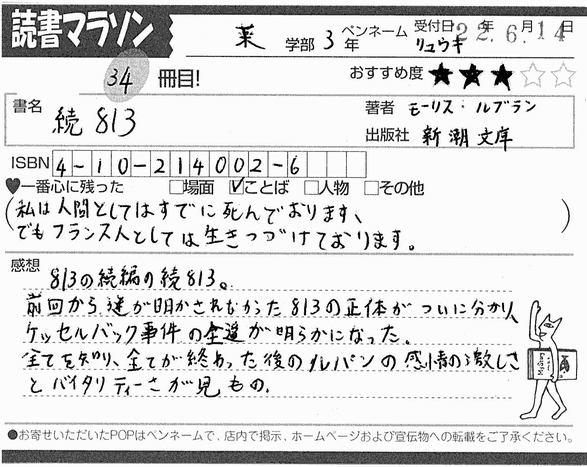 読書マラソン
薬 学部 3年 ペンネーム リュウキ 受付日 22年 6.月 14日
34 冊目! おすすめ度 ★★★☆☆
書名 続 813 著者 モーリス・ルブラン
出版社 新潮文庫
ISBN 4-10-214002-6
♥一番心に残った □場面 ☑ことば □人物 □その他
(私は人間としてはすでに死んでおります、
でもフランス人としては生きつづけております。)
感想 813の続編の続813。
前回から謎が明かされなかった813の正体がついに分かり、
ケッセルバック事件の全進が明らかになった。
全てを知り、全てが終わった後のルパンの感情の激しさ
とバイタリティーさが見もの。
●お寄せいただいたPOPはペンネームで、店内で掲示、ホームページおよび宣伝物への転載をご了承ください。